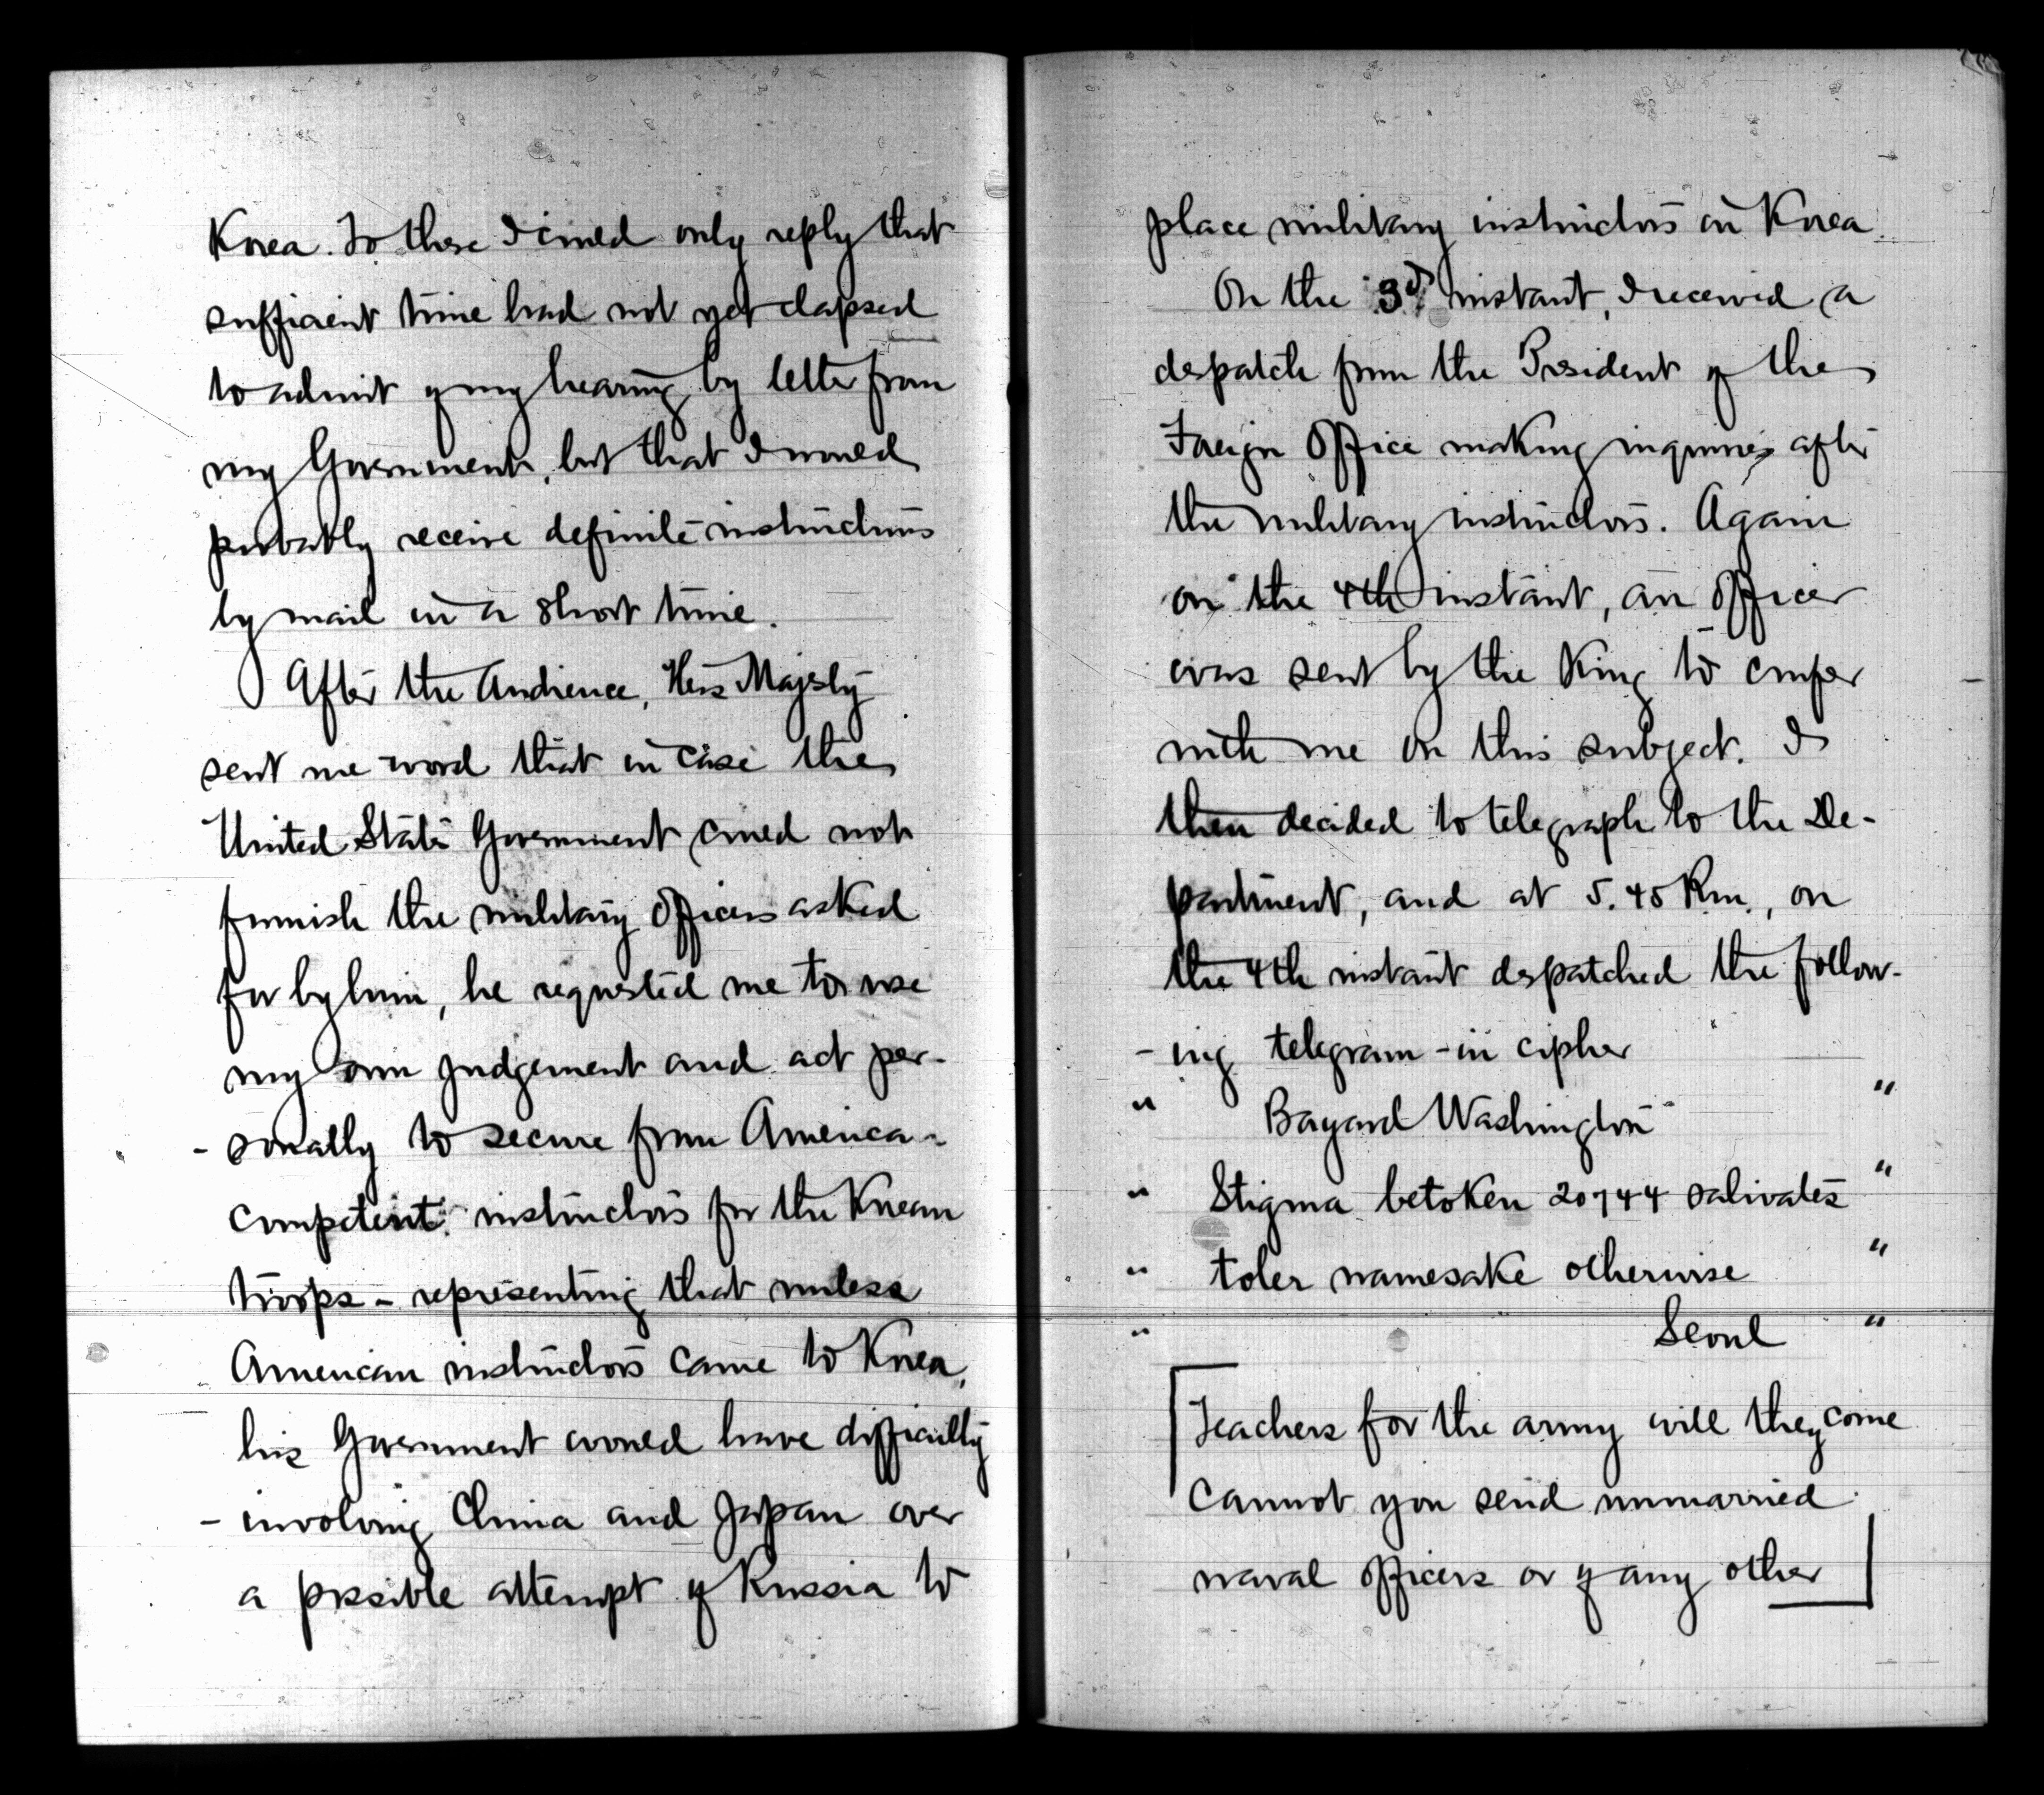 Korea. To these I could only reply that
sufficient time had not yet elapsed
to admit of my hearing by letter from
my Government, but that I would
probably receive definite instructions
by mail in a short time.
After the Audience, His Majesty
sent me word that in case the
United States Government could not
furnish the military officers asked
for by him, he requested me to use
my own judgement and act per-
- sonally to secure from America -
competent instructors for the Korean
troops - representing that unless
American instructors came to Korea,
his Government would have difficulty
- involving China and Japan over
a possible attempt of Russia to
place military instructors in Korea.
On the 3d instant, I received a
despatch from the President of the
Foreign Office making inquiries after
the military instructors. Again
on the 4th instant, an officer
was sent by the King to confer
with me on this subject. I
then decided to telegraph to the De-
partment, and at 5.45 P.m., on
the 4th instant despatched the follow-
- ing telegram - in cipher
" Bayard Washington "
" Stigma betoken 20744 salivates "
" toler namesake otherwise "
" Seoul "
[Teachers for the army will they come
cannot you send unmarried
naval officers or of any other]